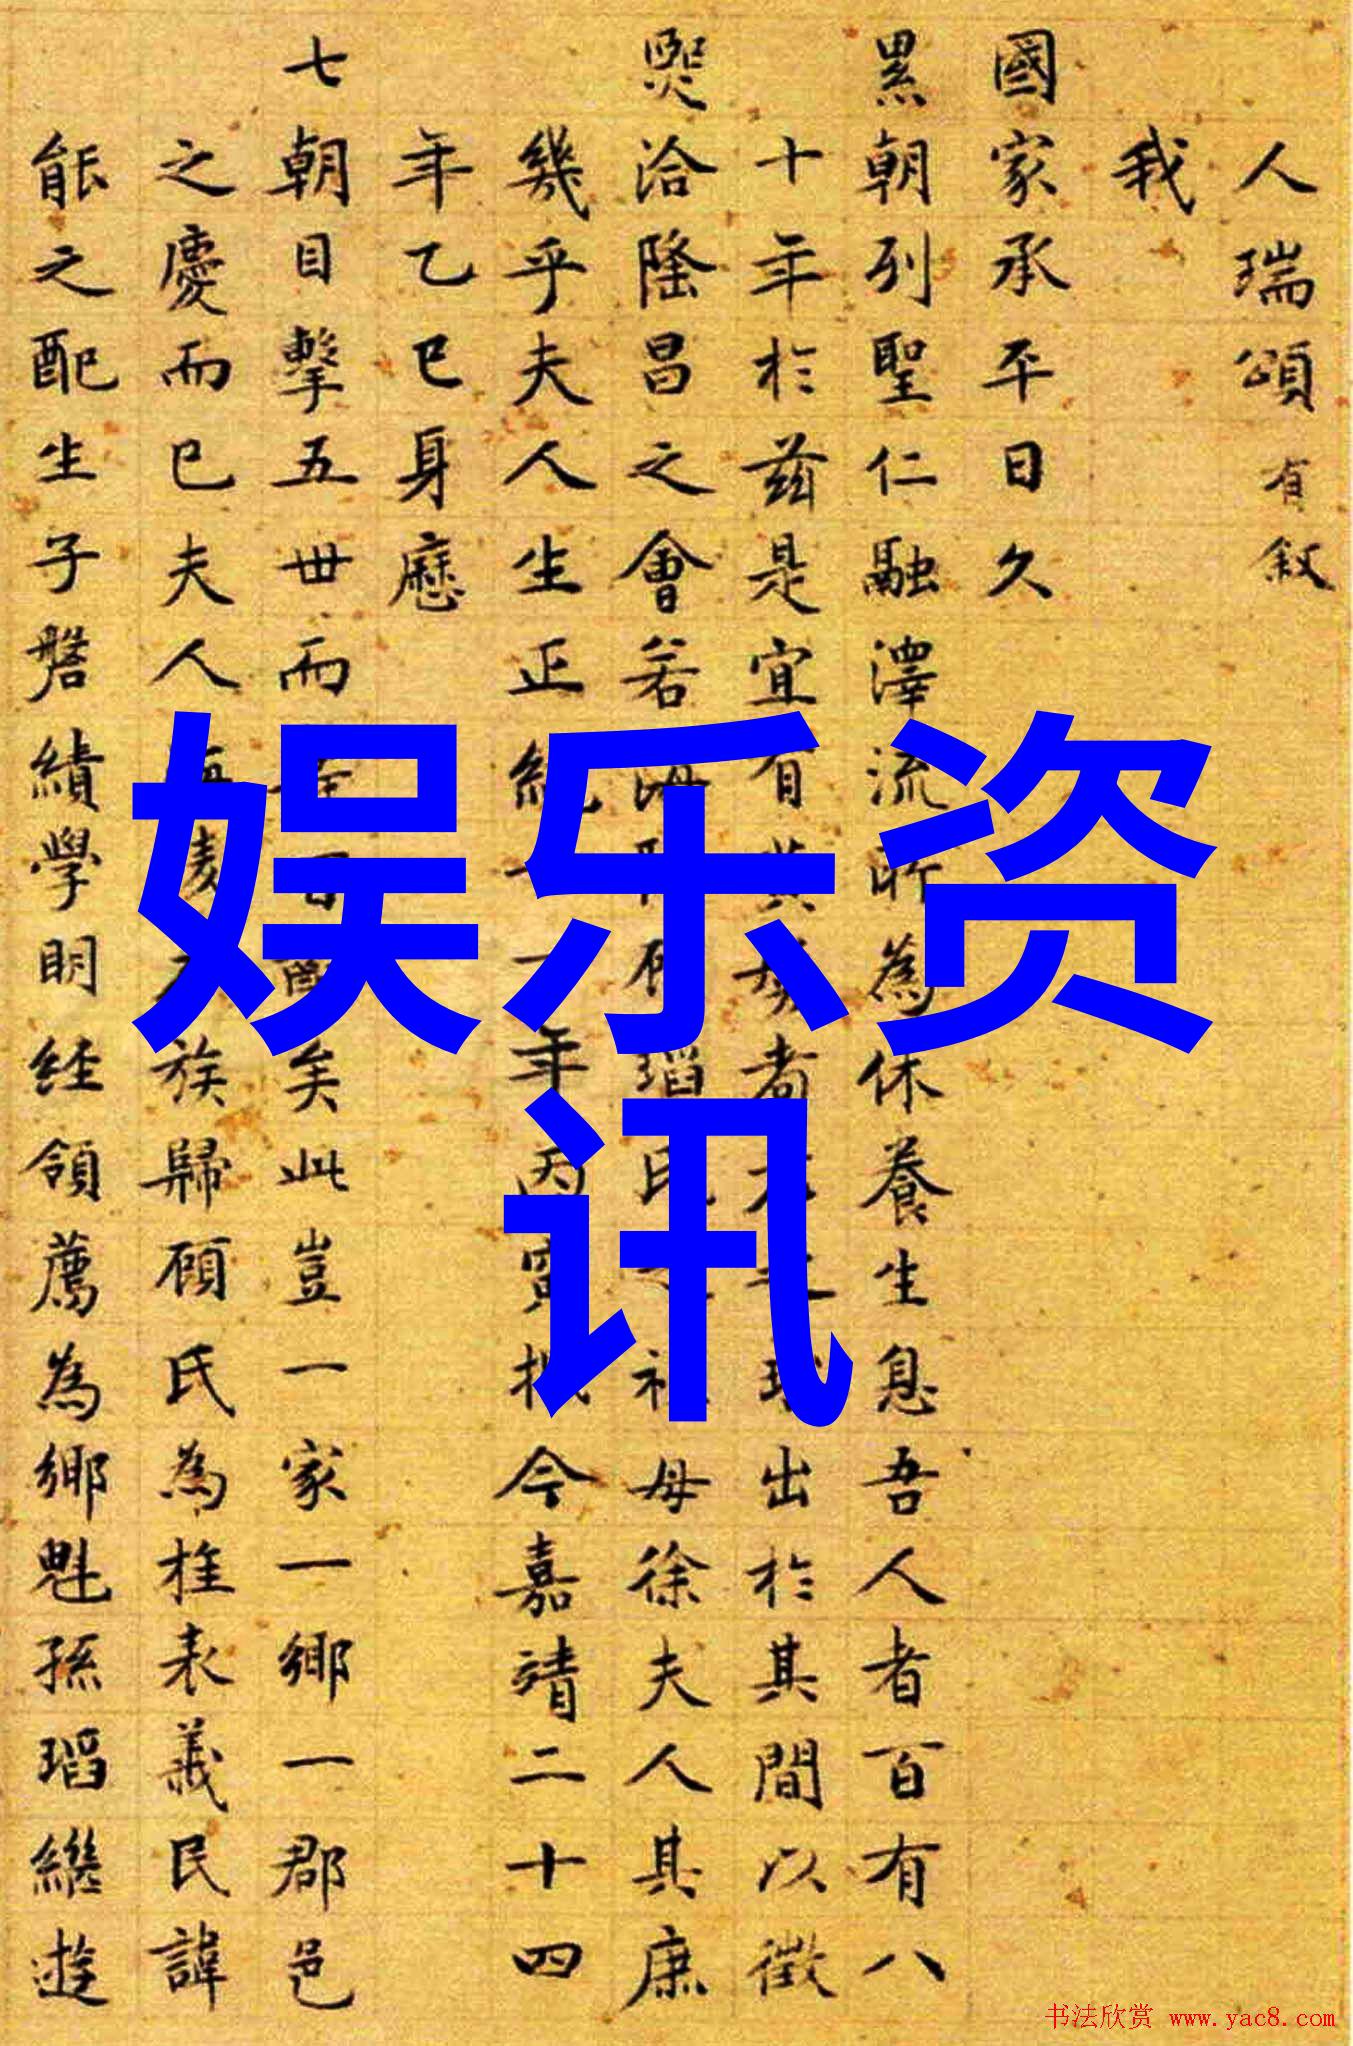 人瑞頌有叙
我
國家承平日久
累朝列聖仁融澤流所為休養生息吾人者百有八
十年於茲是宜有其出於其間以徵
熙洽隆昌之會若母徐夫人其庶
幾乎夫人生正統年丙寅今嘉靖二十四
年乙巳身歷
七朝目擊五世而矣此豈一家一鄉一郡邑
之慶而已夫人族歸顧氏為桂表義民諱
能之配生子磐績學明經領薦為鄉魁孫瑫繼遊
娱乐资
讯
书法欣赏 www.yac8.com